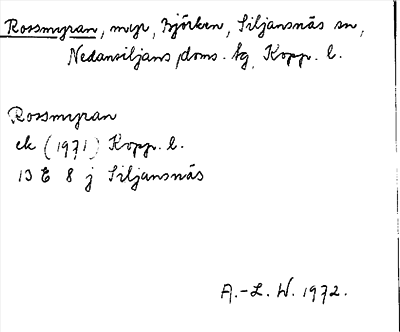 Rossmyran, myr, Björken, Siljansnäs sn,
Nedansiljans doms. tg, Kopp. l.
Rossmyran
ek (1971) Kopp. l.
13 E 8 j Siljansnäs
A.-L. W. 1972.